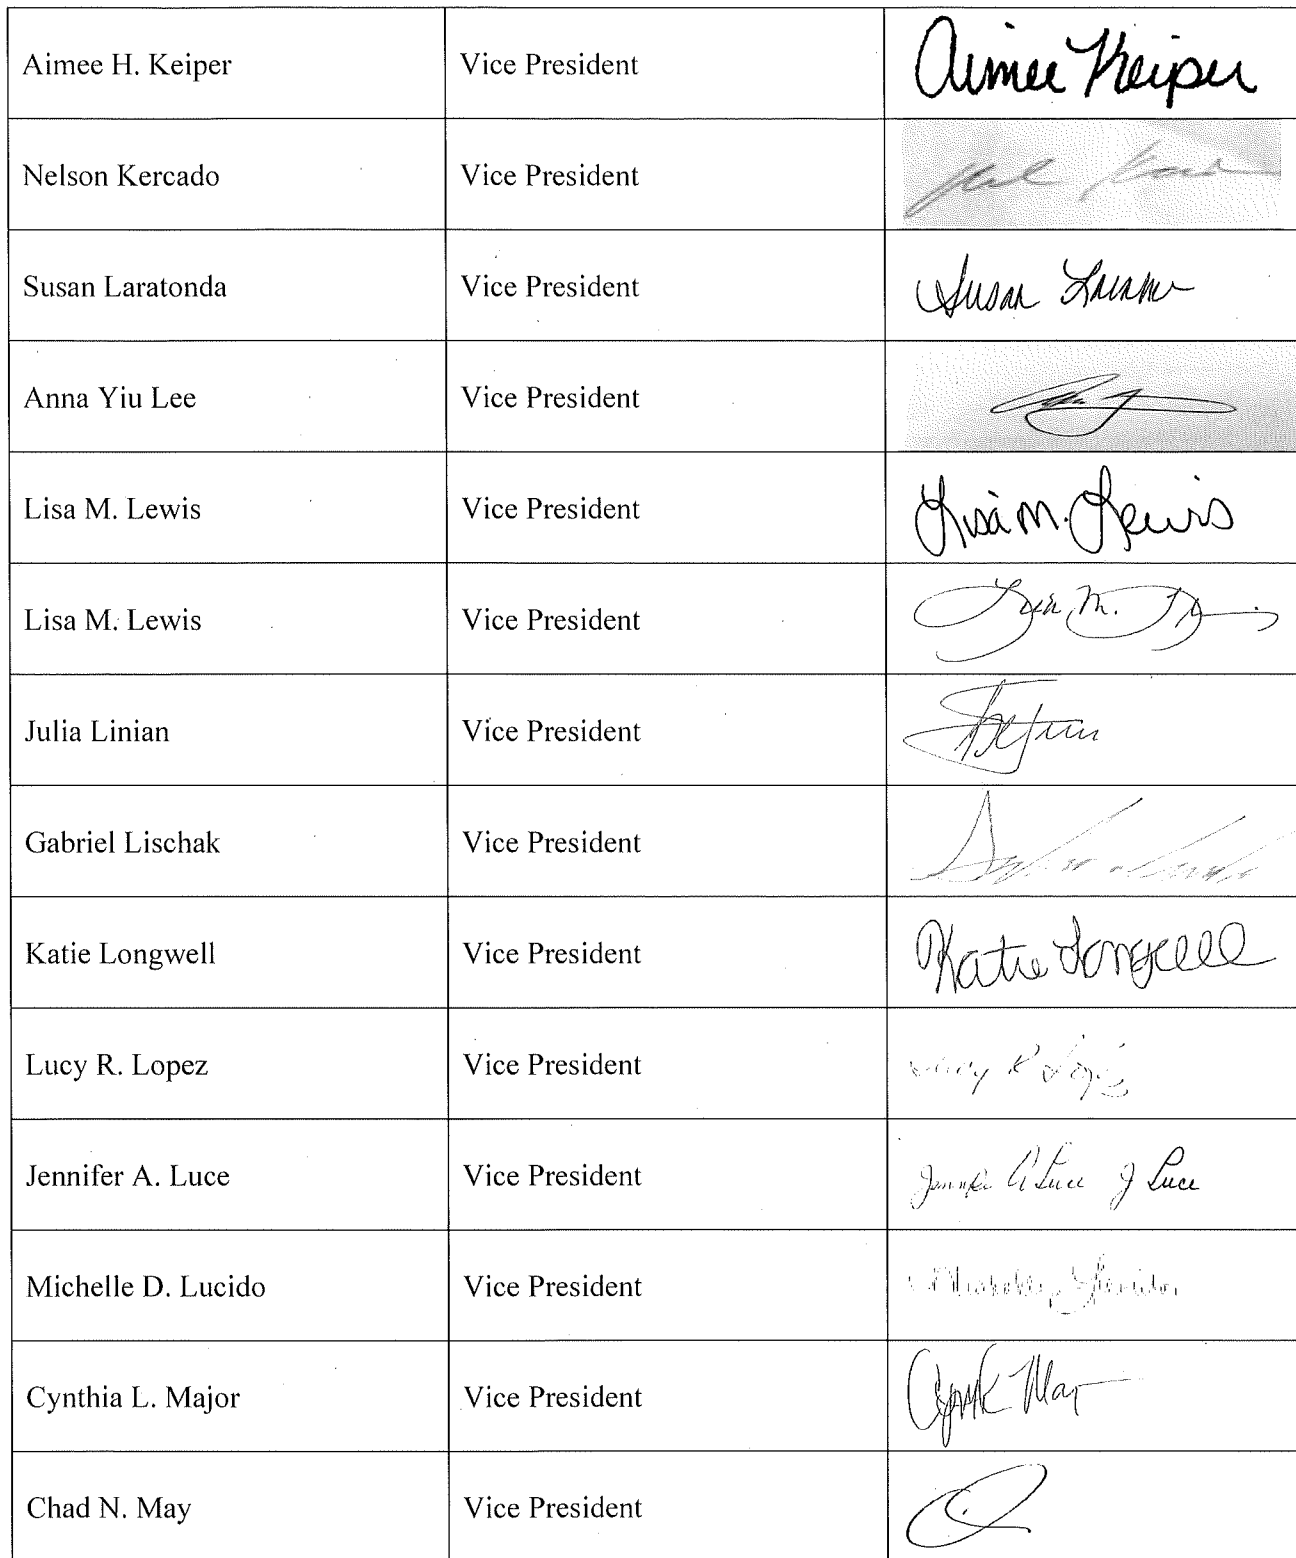 Aimee H. Keiper Vice President Aimee Keiper
Nelson Kercado Vice President
Susan Laratonda Vice President Susan
Anna Yiu Lee Vice President
Lisa M. Lewis Vice President Lisa M. Lewis
Lisa M. Lewis Vice President Lisa M.
Julia Linian Vice President
Gabriel Lischak Vice President
Katie Longwell Vice President Katie Longwell
Lucy R. Lopez Vice President Lucy R Lopez
Jennifer A. Luce Vice President Jennifer A Luce J Luce
Michelle D. Lucido Vice President
Cynthia L. Major Vice President
Chad N. May Vice President